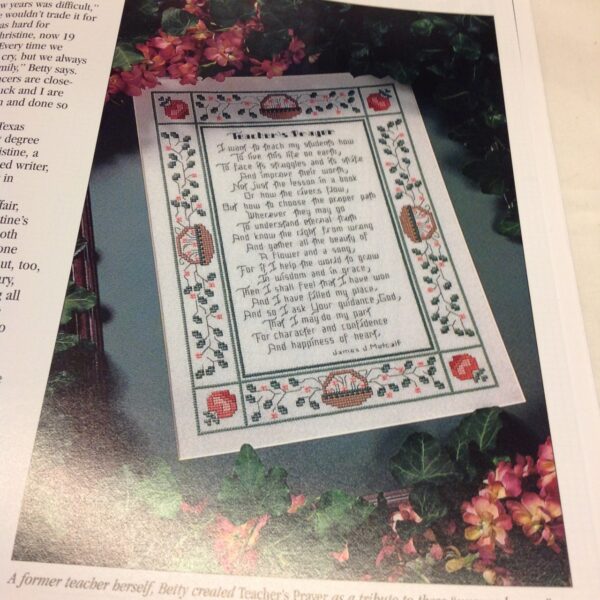 w years was difficult,"
e wouldn't trade it for
as hard for
hristine, now 19
Every time we
cry, but we always
mily," Betty says.
cers are close-
uck and I are
n and done so
Texas
degree
istine, a
ed writer,
in
ffair,
stine's
oth
one
ut, too,
ry,
g all
o
Teacher's Prayer
I want to teach my students how
To live this life on earth,
To face its struggles and its strife
And improve their worth,
Not just the lesson in a book
Or how the rivers flow,
But how to choose the proper path
Wherever they may go
To understand eternal truth
And know the right from wrong
And gather all the beauty of
A flower and a song,
For if I help the world to grow
In wisdom and in grace,
Then I shall feel that I have won
And I have filled my place,
And so I ask Your guidance, God,
That I may do my part
For character and confidence
And happiness of heart.
James J Metcalf
A former teacher herself, Betty created Teacher's Prayer as a tribute to those